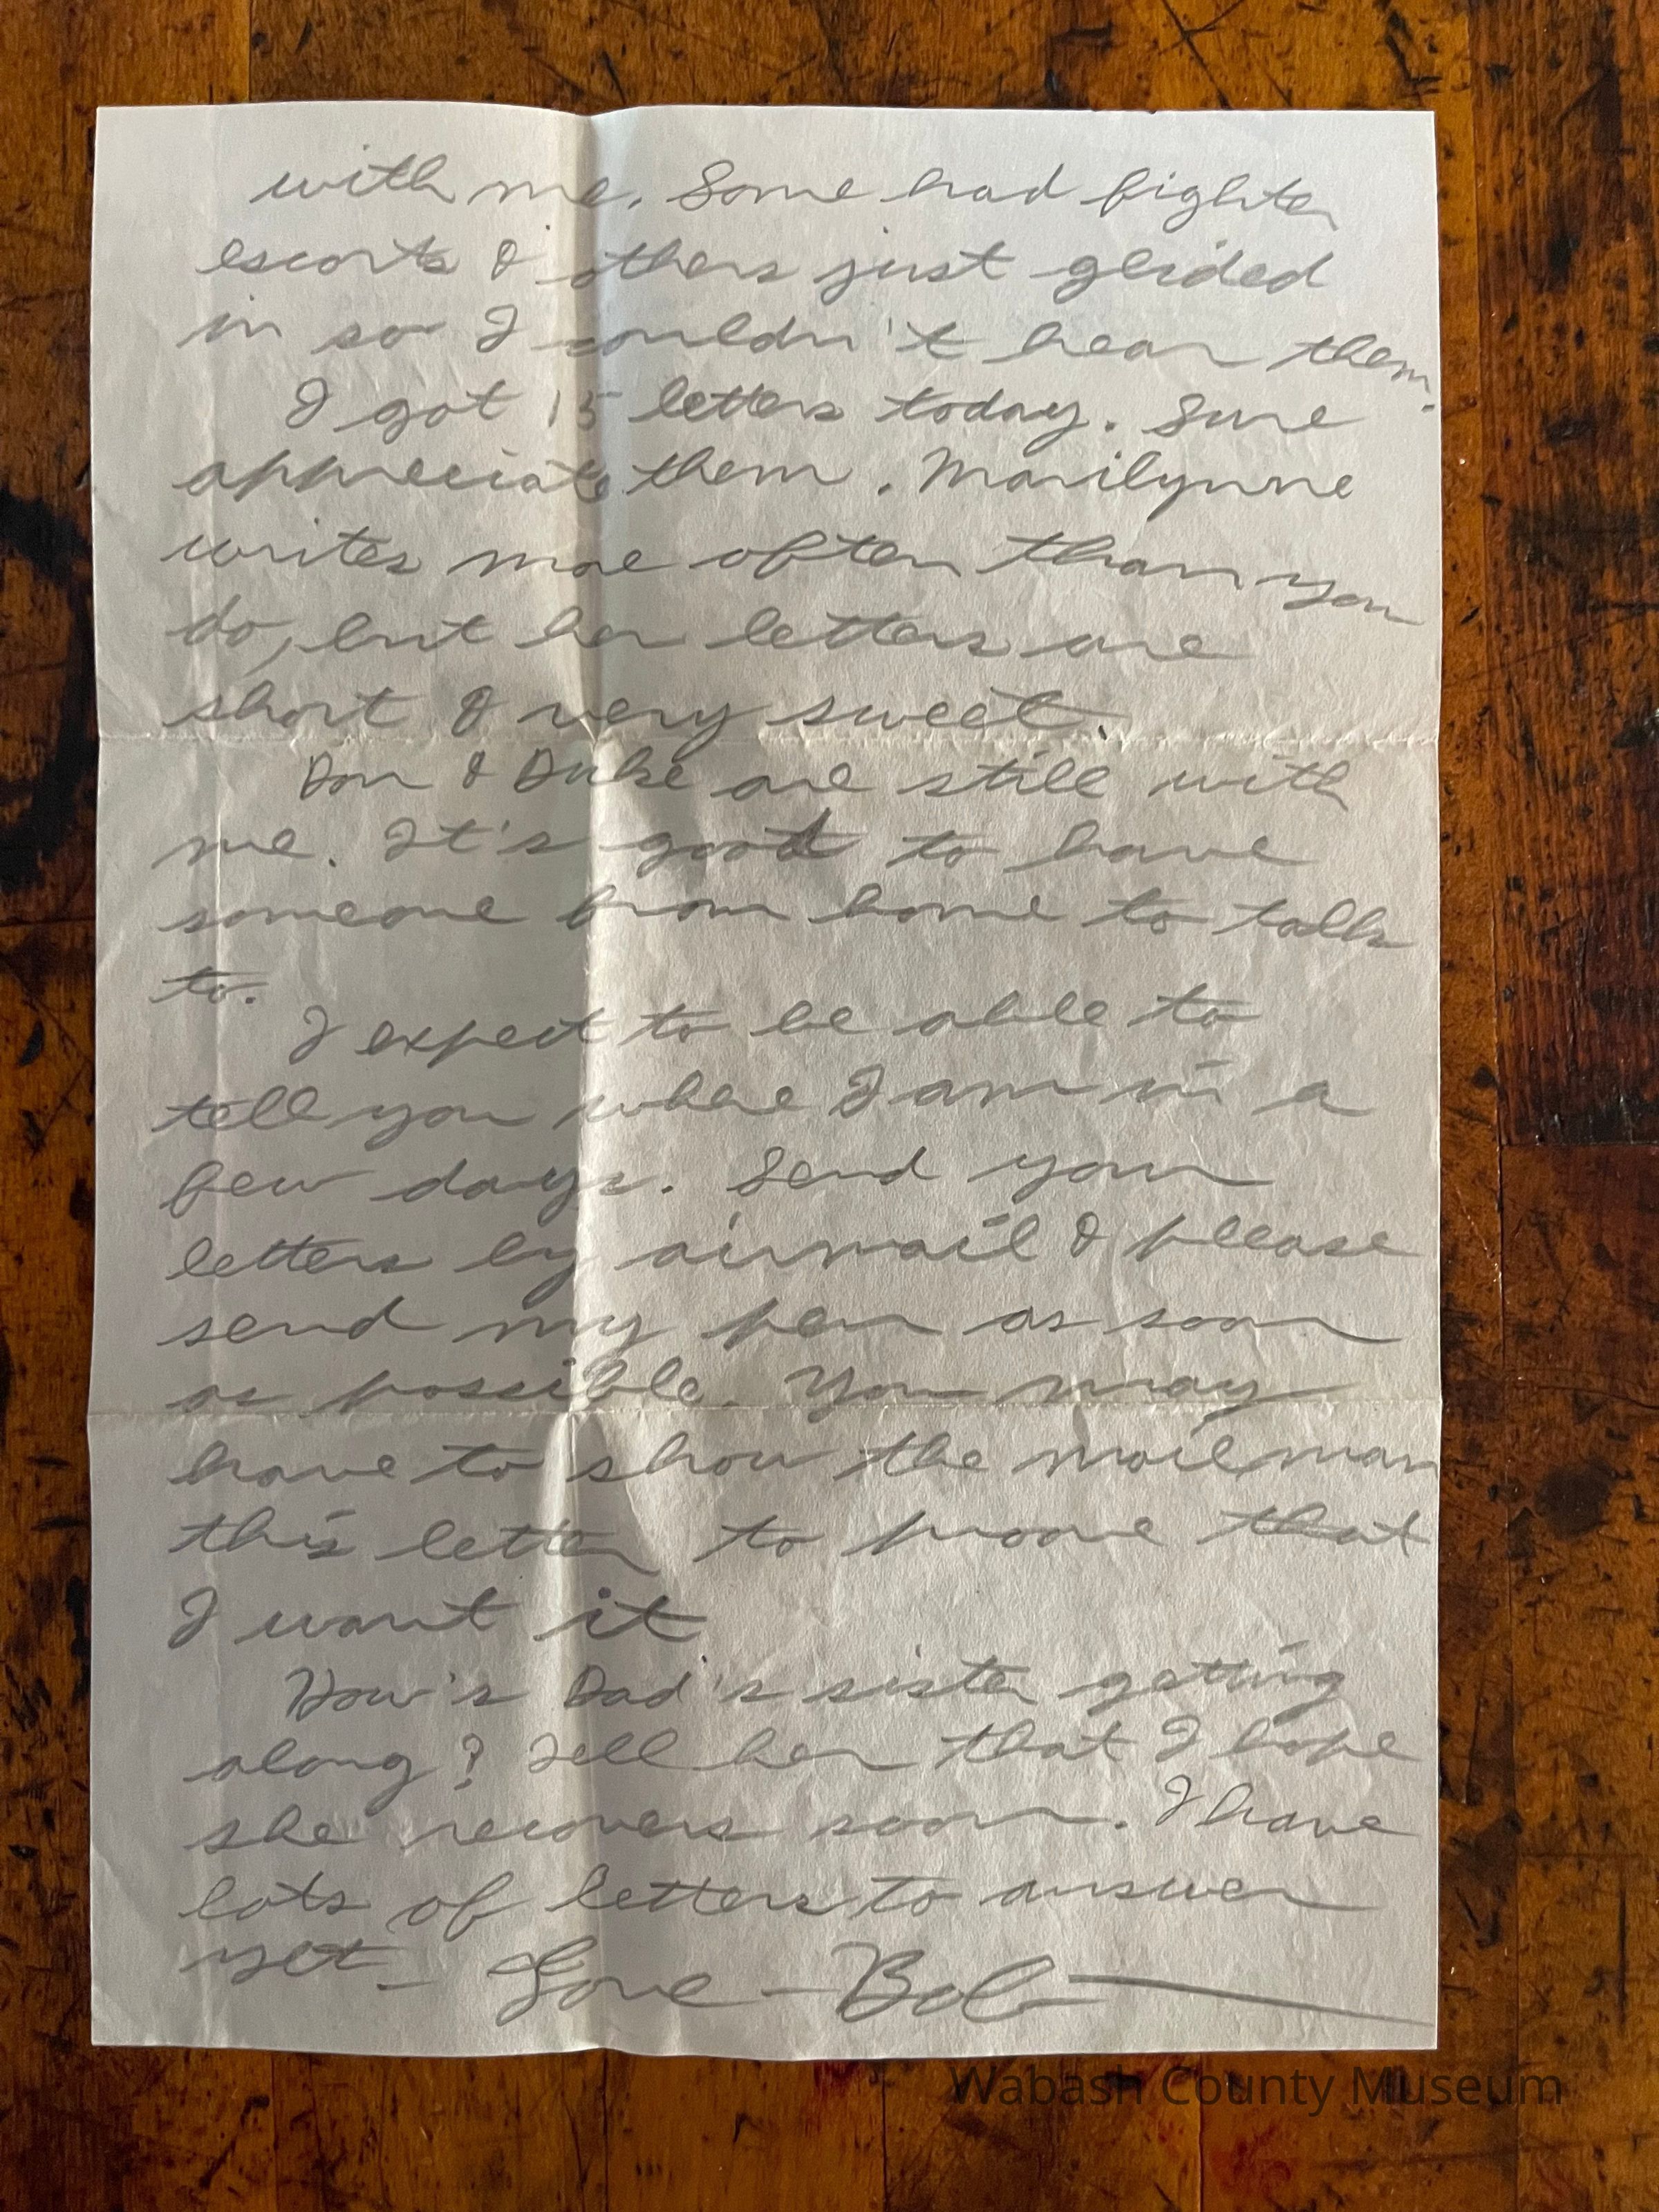 with me. Some had fighter
escorts & others just glided
in so I couldn't hear them.
I got 15 letters today. Sure
appreciate them. Marilynne
writes moe often than you
do, but her letters are
short & very sweet.
Don & Duke are still with
me. It's good to have
someone from home to talk
to.
I expect to be able to
tell you where I am in a
few days. Send your
letters by airmail & please
send my pen as soon
as possible. You may
have to show the mailman
this letter to prove that
I want it.
How's Dad's sister getting
along? Tell her that I hope
she recovers soon. I have
lots of letters to answer
yet - Love - Bob
Wabash County Museum